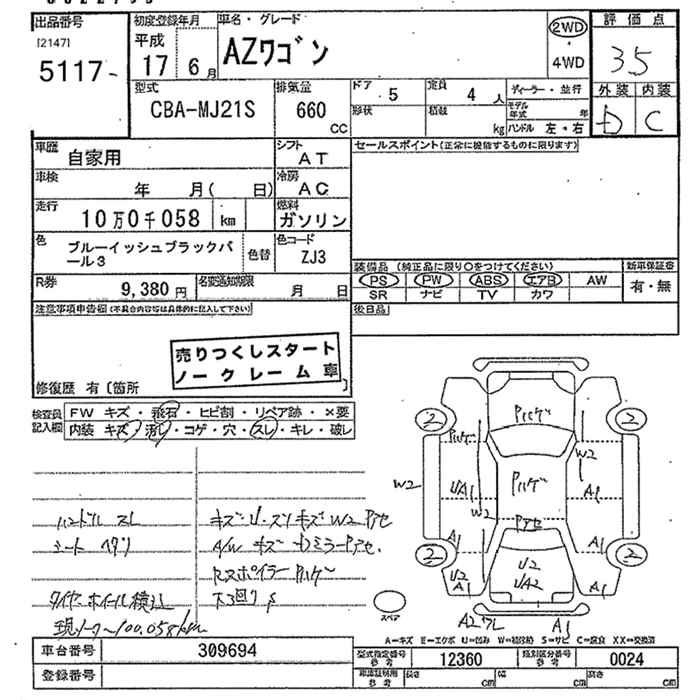 出品番号
[2147]
5117-
初度登録年月
平成
17 6月
車名・グレード
AZワゴン
2WD
・
4WD
評価点
35
外装 内装
D C
型式
CBA-MJ21S
排気量
660
CC
ドア 5
定員 4 人
形状
積載 kg
ディーラー・並行
モデル年式 年
ハンドル 左・右
車歴 自家用
シフト AT
車検 年 月( 日)
冷房 AC
走行 10万0千058 km
燃料 ガソリン
色 ブルーイッシュブラックパール3
色替
色コード ZJ3
R券 9,380円
名変通知期限 月 日
セールスポイント(正常に機能するものに限ります)
装備品 (純正品に限り○をつけてください)
PS PW ABS エアB AW
SR ナビ TV カワ
新車保証書
有・無
後日品
注意事項申告欄(不具合内容等は具体的に記入して下さい)
売りつくしスタート
ノークレーム車
修復歴 有〔箇所
検査員記入欄
FW キズ・飛石・ヒビ割・リペア跡・×要
内装 キズ・汚レ・コゲ・穴・スレ・キレ・破レ
ハンドル スレ
シート ヘタリ
タイヤ・ホイール積込
現メーター100,058km
キズ・U・スリキズ W2 Pアセ
A/W キズ カミラーPアセ.
RスポイラーPハゲ
下回りS
2 2
Pハゲ
Pハゲ
W2
W2
UA1
Pハゲ
A1
W2
Pアセ
A1 A1
2 2
U2
A1
U2
UA2
A1
A2ワレ A1
スペア
A=キズ E=エクボ U=凹み W=補修跡 S=サビ C=腐食 XX=交換済
車台番号 309694
登録番号
型式指定番号 参考 12360
類別区分番号 参考 0024
車庫証明用 参考
長さ cm
幅 cm
高さ cm